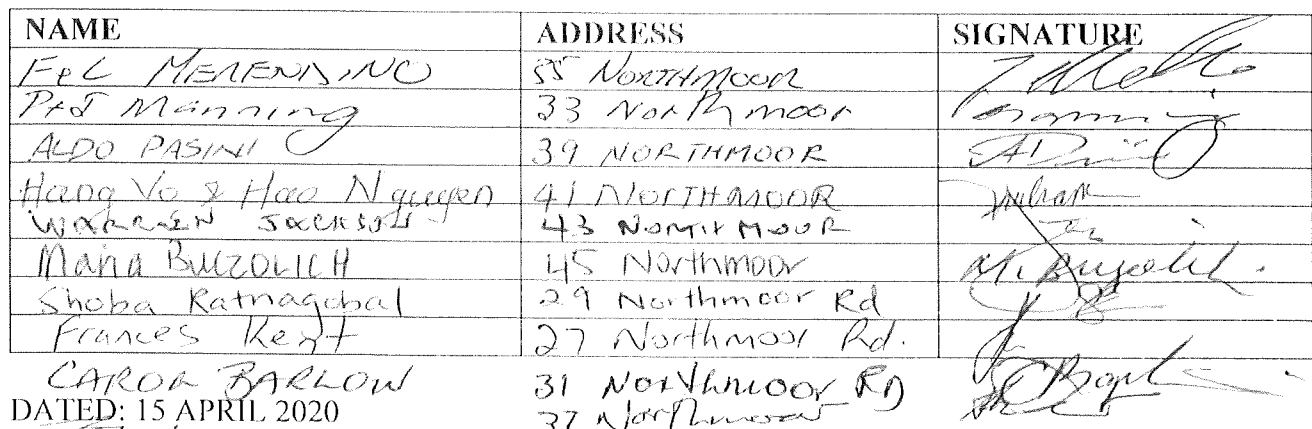 NAME ADDRESS SIGNATURE
F&C MERENDINO 35 NORTHMOOR
P+J Manning 33 Northmoor
ALDO PASINI 39 NORTHMOOR
Hang Vo & Hao Nguyen 41 NORTHMOOR
WARREN JACKSON 43 NORTHMOOR
Maria BUCZOLICH 45 Northmoor
Shoba Ratnagobal 29 Northmoor Rd
Frances Kent 27 Northmoor Rd.
CAROL BARLOW 31 Northmoor RD
DATED: 15 APRIL 2020 37 Northmoor